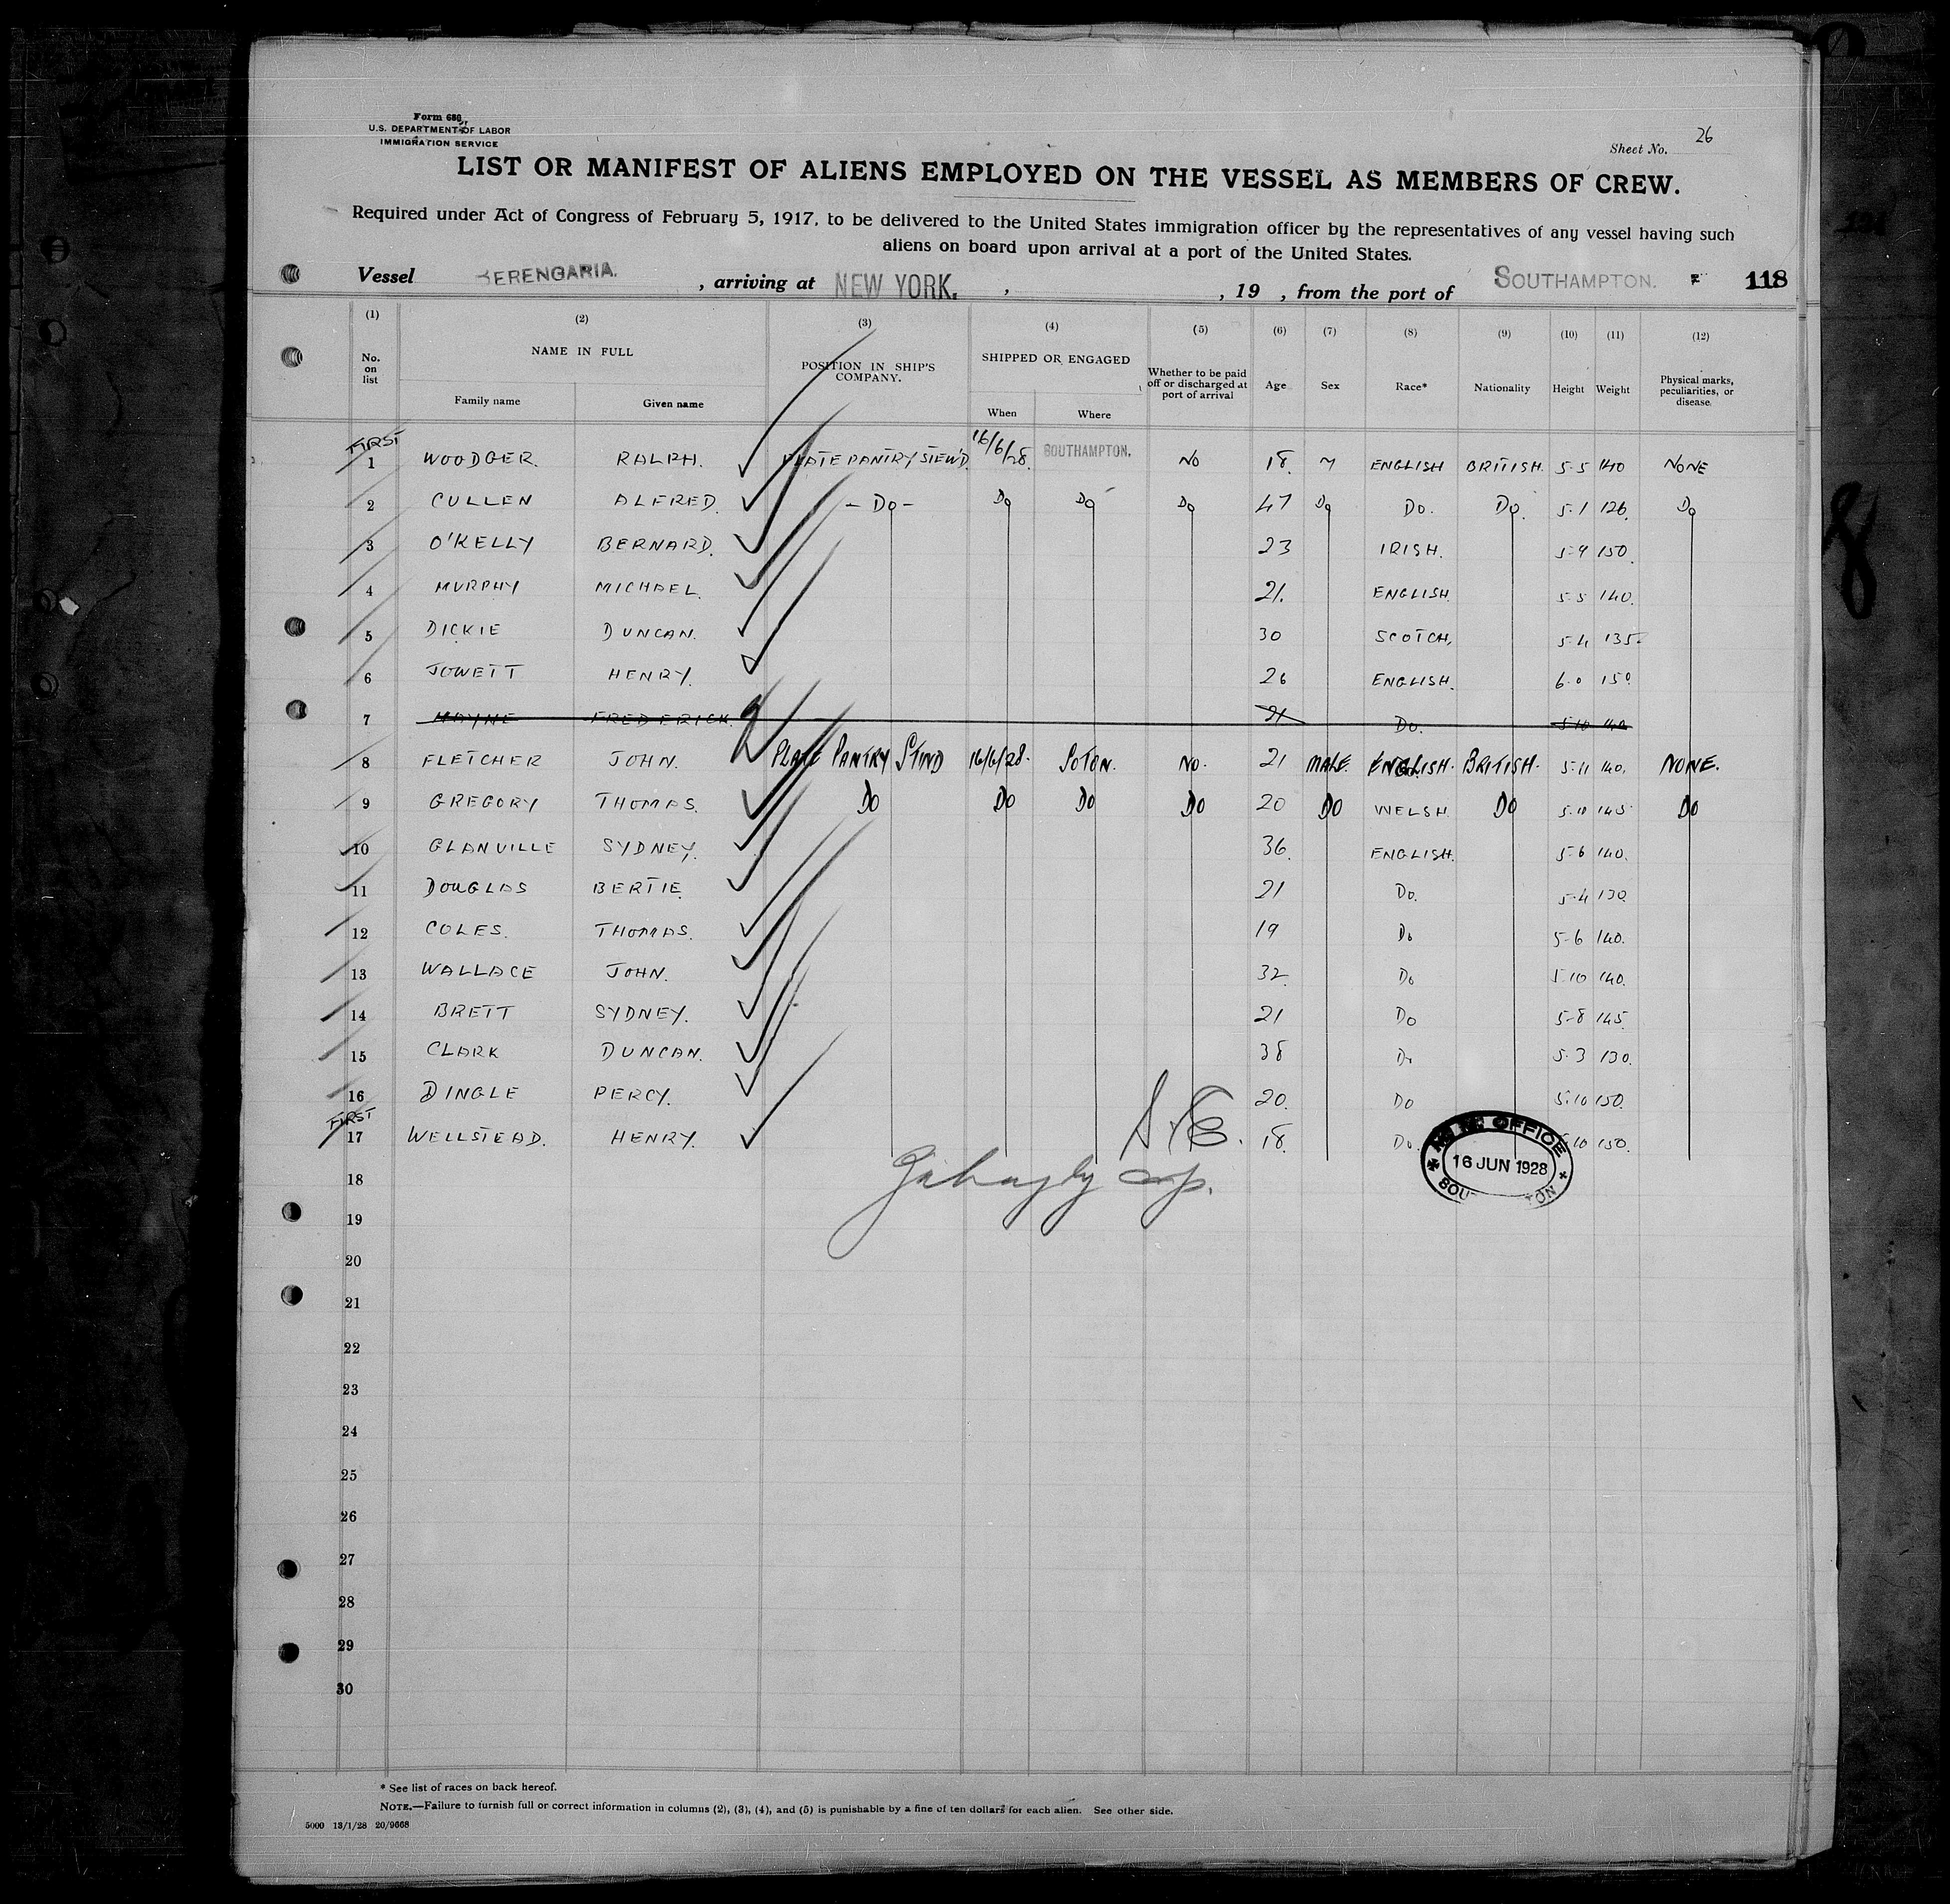 Form 680
U.S. DEPARTMENT OF LABOR
IMMIGRATION SERVICE
Sheet No. 26
LIST OR MANIFEST OF ALIENS EMPLOYED ON THE VESSEL AS MEMBERS OF CREW.
Required under Act of Congress of February 5, 1917, to be delivered to the United States immigration officer by the representatives of any vessel having such
aliens on board upon arrival at a port of the United States.
Vessel BERENGARIA. , arriving at NEW YORK. , , 19 , from the port of SOUTHAMPTON. 118
(1) (2) (3) (4) (5) (6) (7) (8) (9) (10) (11) (12)
No. on list NAME IN FULL POSITION IN SHIP'S COMPANY. SHIPPED OR ENGAGED Whether to be paid off or discharged at port of arrival Age Sex Race* Nationality Height Weight Physical marks, peculiarities, or disease.
Family name Given name When Where
FIRST
1 WOODGER. RALPH. PLATE PANTRY STEW'D 16/6/28. SOUTHAMPTON. NO 18. M ENGLISH BRITISH. 5-5 140 NONE
2 CULLEN ALFRED. - Do - Do Do Do 47 Do Do. Do. 5-1 126. Do
3 O'KELLY BERNARD. 23 IRISH. 5-9 150.
4 MURPHY MICHAEL. 21. ENGLISH. 5-5 140.
5 DICKIE DUNCAN. 30 SCOTCH, 5-4 135.
6 JOWETT HENRY. 26 ENGLISH. 6-0 150
7 MAYNE FREDERICK. 21 Do. 5-10 140
8 FLETCHER JOHN. PLATE PANTRY STWD 16/6/28. SOTON. NO. 21 MALE. ENGLISH. BRITISH. 5-11 140. NONE.
9 GREGORY THOMAS. DO DO DO DO 20 DO WELSH. DO 5-10 145 DO
10 GLANVILLE SYDNEY. 36. ENGLISH. 5-6 140.
11 DOUGLAS BERTIE. 21 Do. 5-4 130.
12 COLES. THOMAS. 19 Do 5-6 140.
13 WALLACE JOHN. 32. Do 5-10 140.
14 BRETT SYDNEY. 21 Do 5-8 145.
15 CLARK DUNCAN. 38 Do 5-3 130.
16 DINGLE PERCY. 20. Do 5-10 150.
FIRST
17 WELLSTEAD. HENRY. 18. Do. 10 150.
OFFICE
16 JUN 1928
18
19
20
21
22
23
24
25
26
27
28
29
30
* See list of races on back hereof.
NOTE.—Failure to furnish full or correct information in columns (2), (3), (4), and (5) is punishable by a fine of ten dollars for each alien. See other side.
5000 13/1/28 20/9668
8